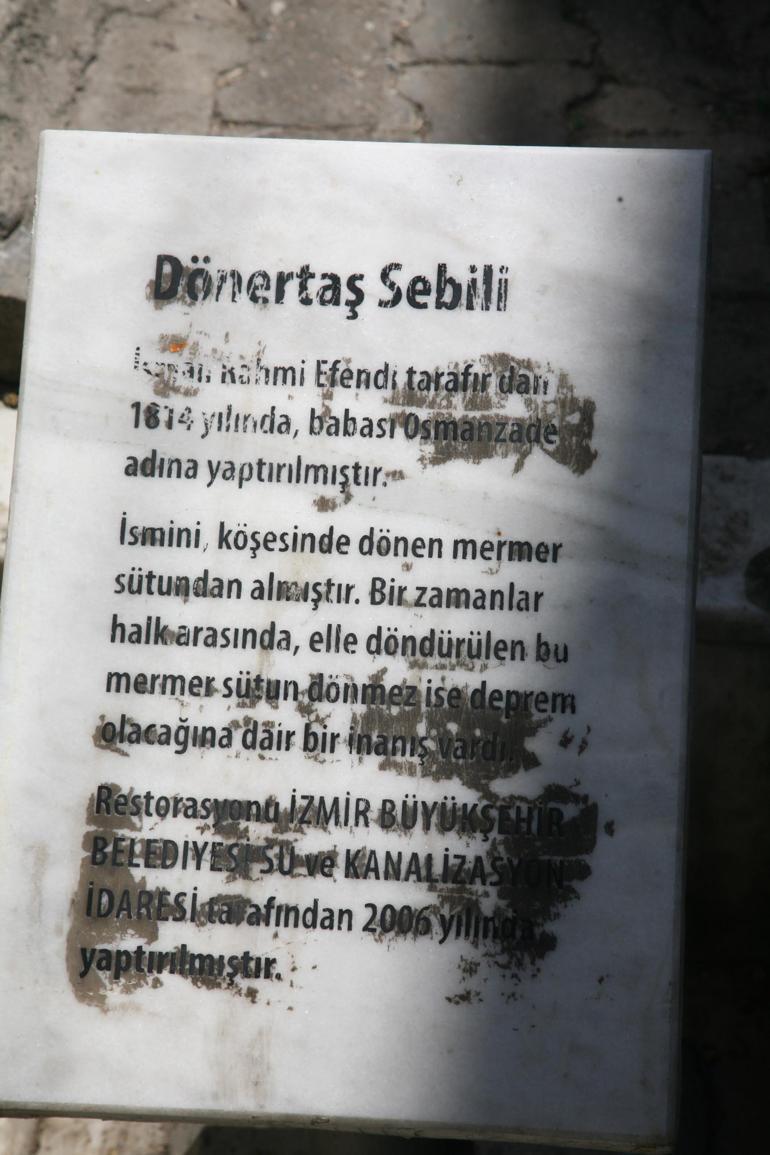 Dönertaş Sebili
Rahmi Efendi tarafından
1814 yılında, babası Osmanzade
adına yaptırılmıştır.
İsmini, köşesinde dönen mermer
sütundan almıştır. Bir zamanlar
halk arasında, elle döndürülen bu
mermer sütun dönmez ise deprem
olacağına dair bir inanış vardı.
Restorasyonu İZMİR BÜYÜKŞEHİR
BELEDİYESİ SU ve KANALİZASYON
İDARESİ tarafından 2006 yılında
yaptırılmıştır.